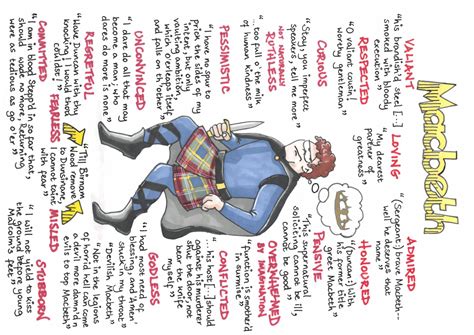 Macbeth
VALIANT
"his brandish'd steel [...]
smoked with bloody
execution"
RESPECTED
"O valiant cousin!
worthy gentleman"
CURIOUS
"Stay, you imperfect
speakers, tell me more"
NOT NATURALLY
RUTHLESS
"... too full o' the milk
of human kindness"
PESSIMISTIC
"I have no spur to
prick the sides of my
intent, but only
vaulting ambition,
which o'erleaps itself
and falls on th'other"
UNCONVINCED
"I dare do all that may
become a man; who
dares do more is none"
REGRETFUL
"Wake Duncan with thy
knocking! I would thou
couldst"
COMMITTED
"I am in blood stepp'd in so far that
should I wade no more, Returning
were as tedious as go o'er"
LOVING
"My dearest
partner of
greatness"
FEARLESS
"Till Birnam
Wood remove
to Dunsinane,
I cannot taint
with fear"
ADMIRED
(Sergeant:) "brave Macbeth –
well he deserves
that name"
HONOURED
(Duncan:) "With
his former title
greet Macbeth"
PENSIVE
"This supernatural
soliciting cannot be ill;
cannot be good"
OVERWHELMED
BY IMAGINATION
"function is smother'd
in surmise"
CONFLICTED
"... his host [...] should
against his murderer
shut the door, not
bear the knife
myself"
GODLESS
"I had most need of
blessing, and 'Amen'
stuck in my throat"
MISLED
"Devilish Macbeth"
"Not in the legions
of horrid hell can come
a devil more damn'd in
evils to top Macbeth"
STUBBORN
"I will not yield to kiss
the ground before young
Malcolm's feet"